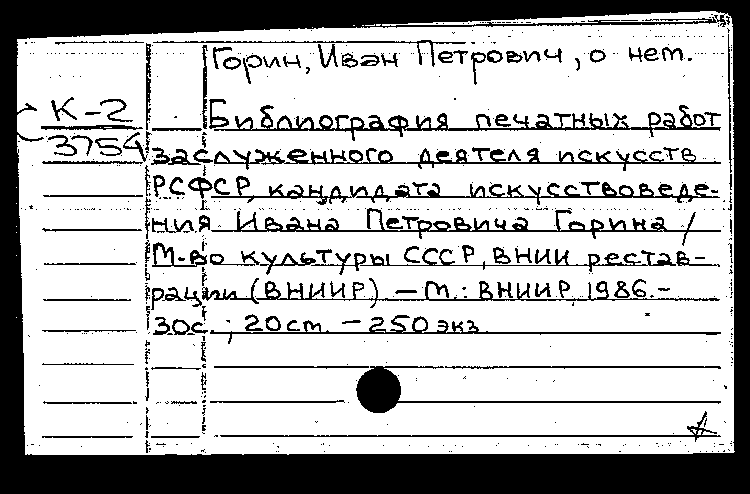 Горин, Иван Петрович, о нем.
К-2
3754
Библиография печатных работ
заслуженного деятеля искусств
РСФСР, кандидата искусствоведе-
ния Ивана Петровича Горина /
М-во культуры СССР, ВНИИ рестав-
рации (ВНИИР) — М.: ВНИИР, 1986.-
30с.; 20 ст. - 250 экз.